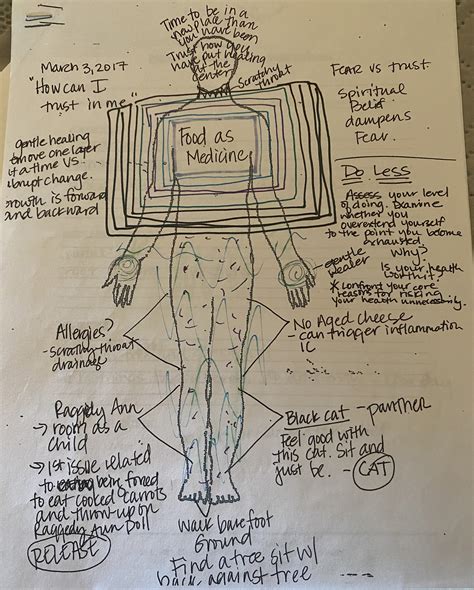 Time to be in a
new place than
you have been
Trust how you
have put healing
at the
center
scratchy
throat
March 3, 2017
"How can I
trust in me"
gentle healing
to move one layer
at a time vs.
abrupt change.
growth is forward
and backward
Food as
Medicine
Fear vs trust
Spiritual
Belief
dampens
Fear.
Do Less
Assess your level
of doing. Examine
whether you
overextend yourself
to the point you become
exhausted
Why?
Is your health
worth it?
* Confront your core
reasons for risking
your health unnecessarily.
gentle
healer
Allergies?
- scratchy throat
drainage
No Aged Cheese
- can trigger inflammation
IC
Raggedy Ann
→ room as a
child
→ 1st issue related
to being forced
to eat cooked carrots
and throw-up on
Raggedy Ann Doll
RELEASE
Black cat - panther
Feel good with
this cat. Sit and
just be. - CAT
Walk barefoot
Ground
Find a tree sit w/
back against tree